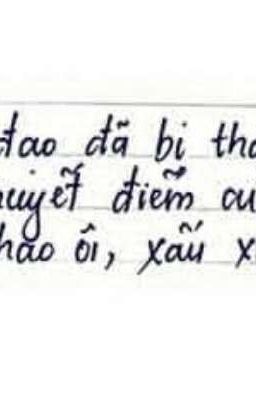 đao đã bị tha
uyết điểm cu
hao ôi, xấu x